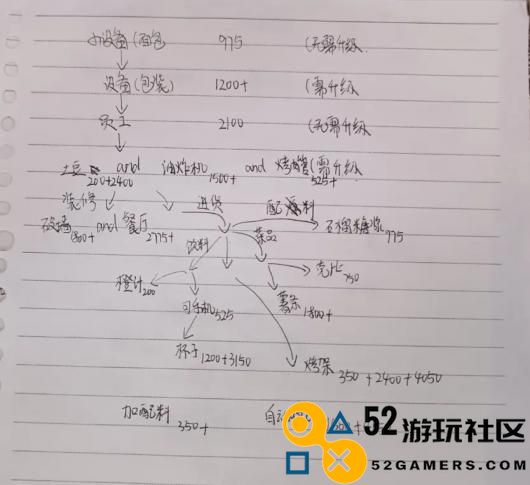 小设备(面包 975 (无需升级
设备(包装) 1200+ (需升级
员工 2100 (无需升级
土豆 200+2400 and 油炸机 1500+ and 烤肉管 525+ (需升级
装修 进货 配料
砍墙 1800+ and 餐厅 2775+ 菜品 石榴糖浆 975
饮料
橙汁 200 壳比 750
可乐机 525 薯条 1800+
杯子 1200+3150 烤架 350+2400+4050
加配料 350+ 自动
52游玩社区
52GAMERS.COM